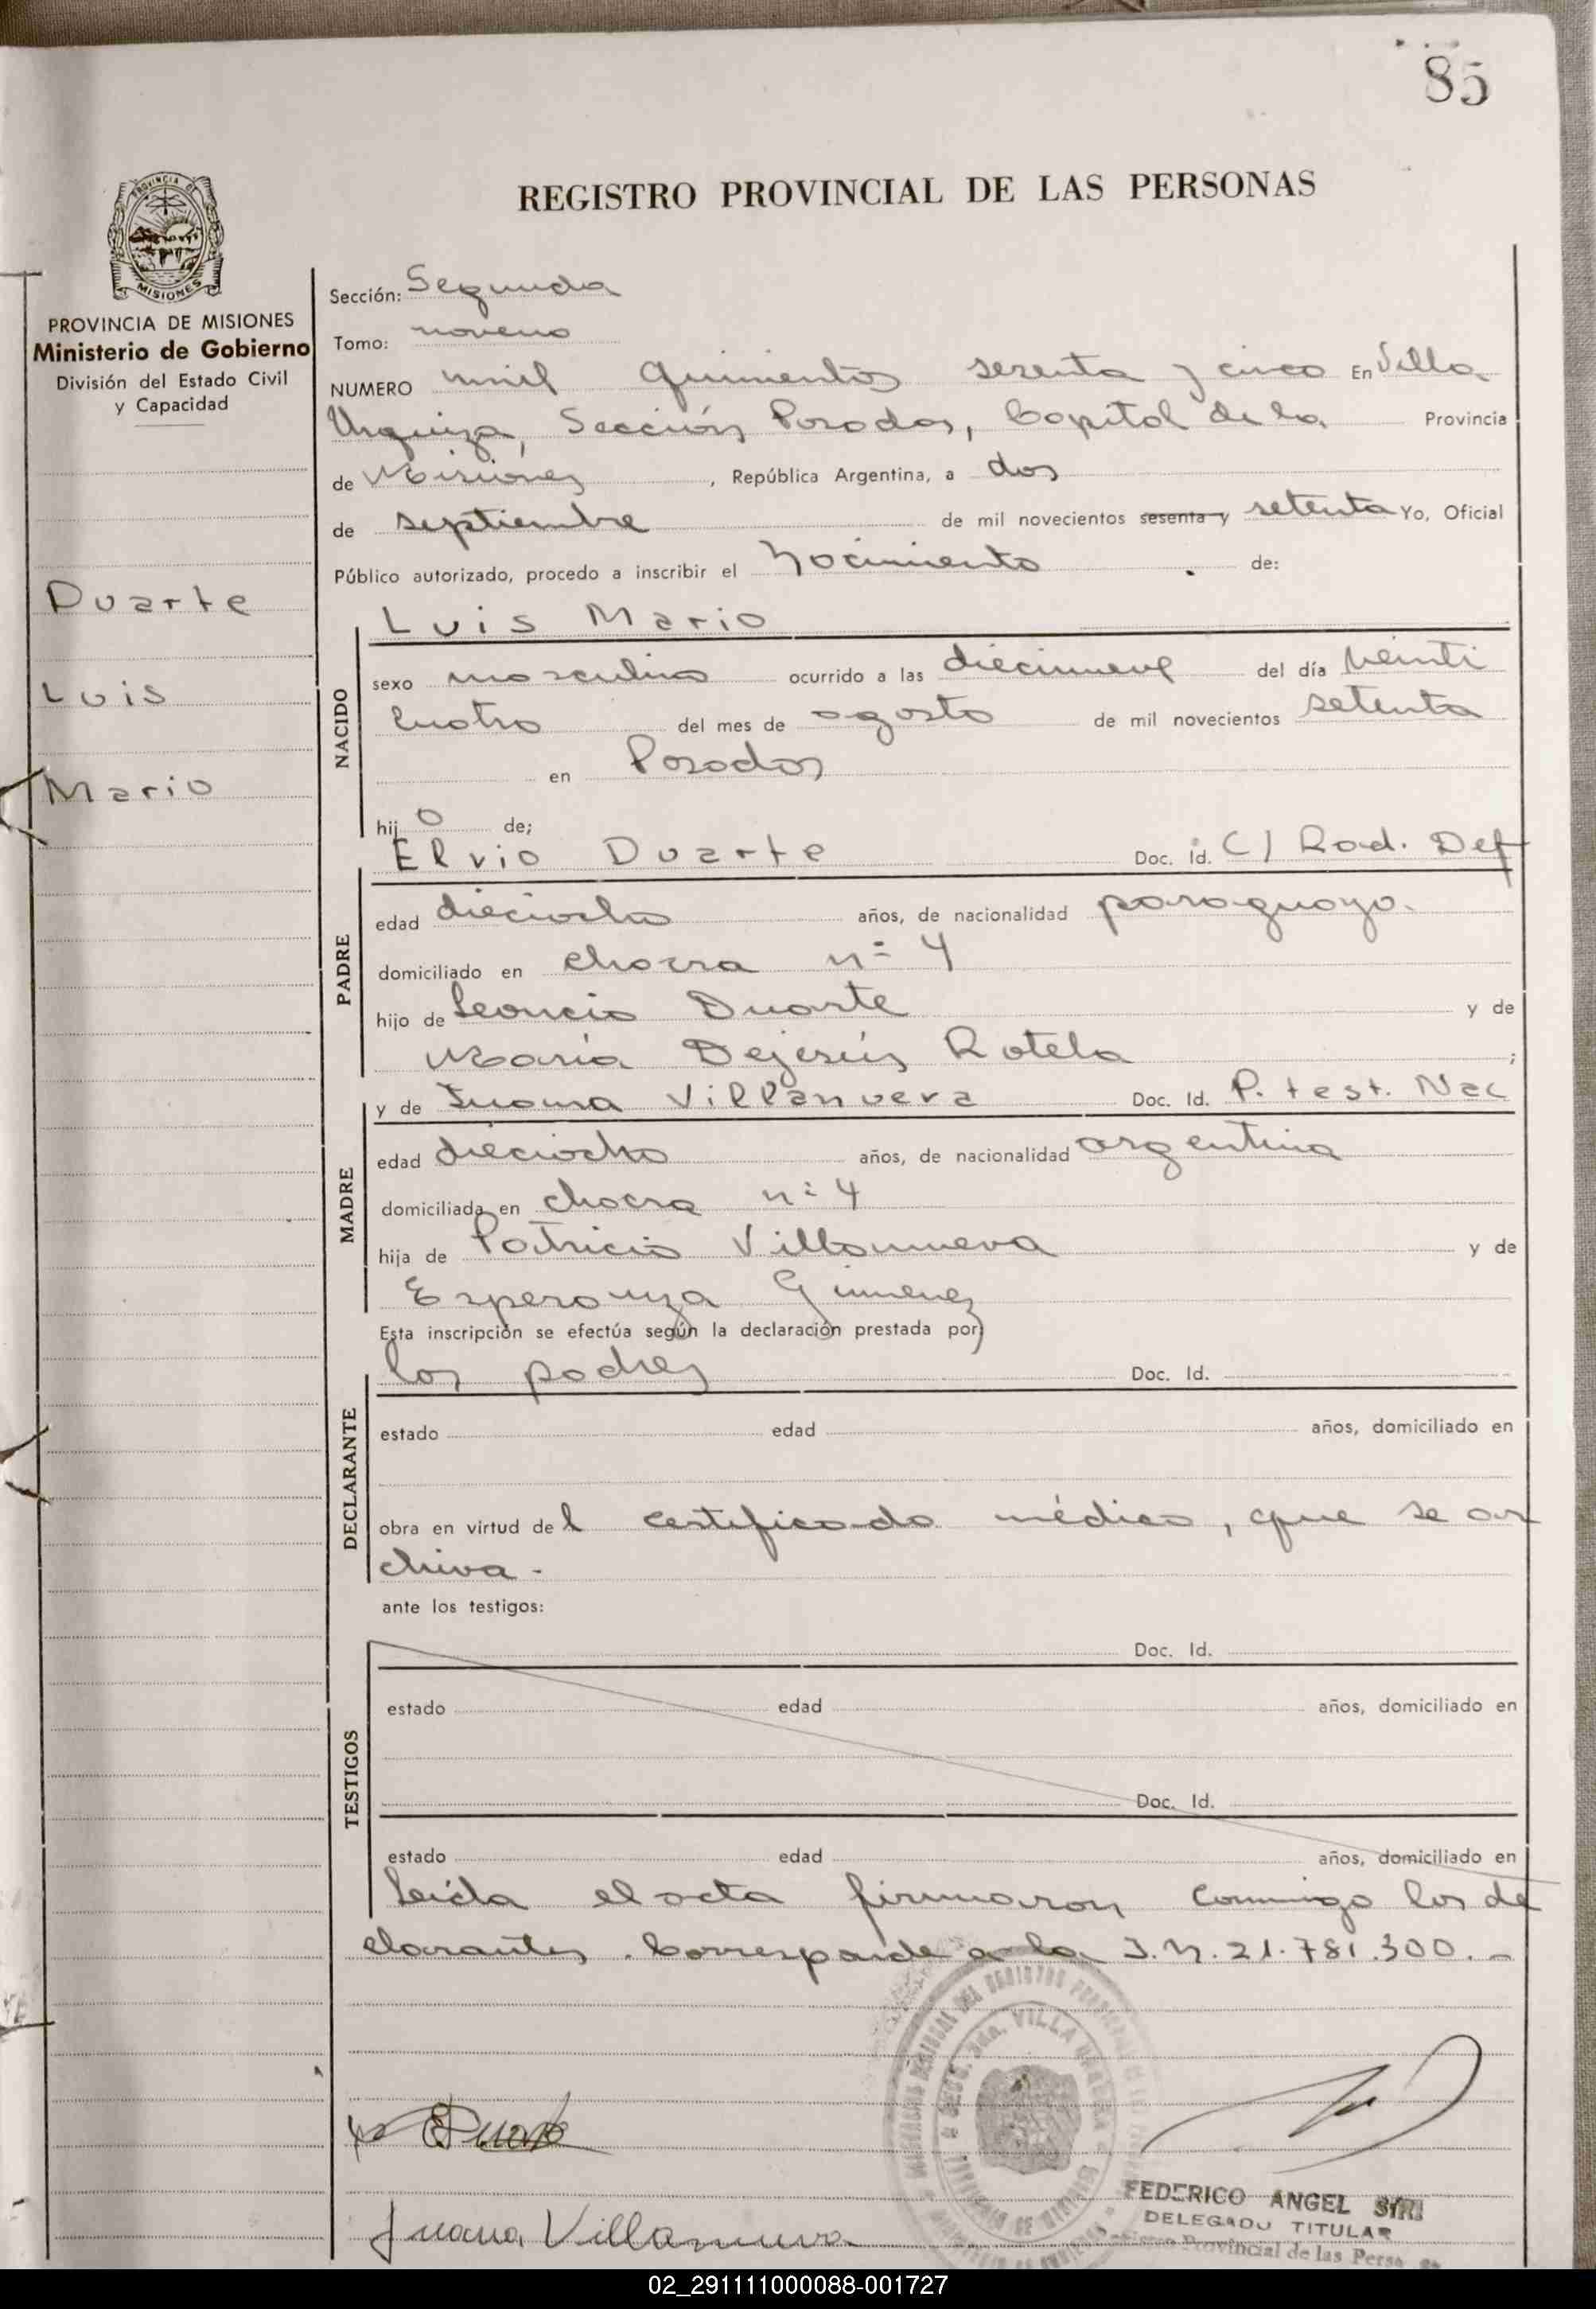 85
REGISTRO PROVINCIAL DE LAS PERSONAS
PROVINCIA DE
MISIONES
PROVINCIA DE MISIONES
Ministerio de Gobierno
División del Estado Civil
y Capacidad
Duarte
Luis
Mario
Sección: Segunda
Tomo: noveno
NUMERO mil quinientos sesenta y cinco En Villa
Urquiza, Sección Posadas, Capital de la Provincia
de Misiones, República Argentina, a dos
de septiembre de mil novecientos sesenta y setenta Yo, Oficial
Público autorizado, procedo a inscribir el Nacimiento de:
Luis Mario
NACIDO
sexo masculino ocurrido a las diecinueve del día veinti
cuatro del mes de agosto de mil novecientos setenta
en Posadas
hijo de;
Elvio Duarte Doc. Id. C/ Rad. Def
PADRE
edad dieciocho años, de nacionalidad paraguayo.
domiciliado en chacra nº 4
hijo de Leoncio Duarte y de
María Dejesús Rotela ;
y de Juana Villanueva Doc. Id. P. test. Nac
MADRE
edad dieciocho años, de nacionalidad argentina
domiciliada en chacra nº 4
hija de Patricio Villanueva y de
Esperanza Gimenez
Esta inscripción se efectúa según la declaración prestada por
los padres Doc. Id.
DECLARANTE
estado edad años, domiciliado en
obra en virtud del certificado médico, que se ar
chiva.-
ante los testigos:
Doc. Id.
TESTIGOS
estado edad años, domiciliado en
Doc. Id.
estado edad años, domiciliado en
Leída el acta firmaron conmigo los de
clarantes. Corresponde a la I.N. 21.781.300.-
EDuarte
Juana Villanueva
FEDERICO ANGEL SIRI
DELEGADO TITULAR
Provincial de las Perso
02_291111000088-001727